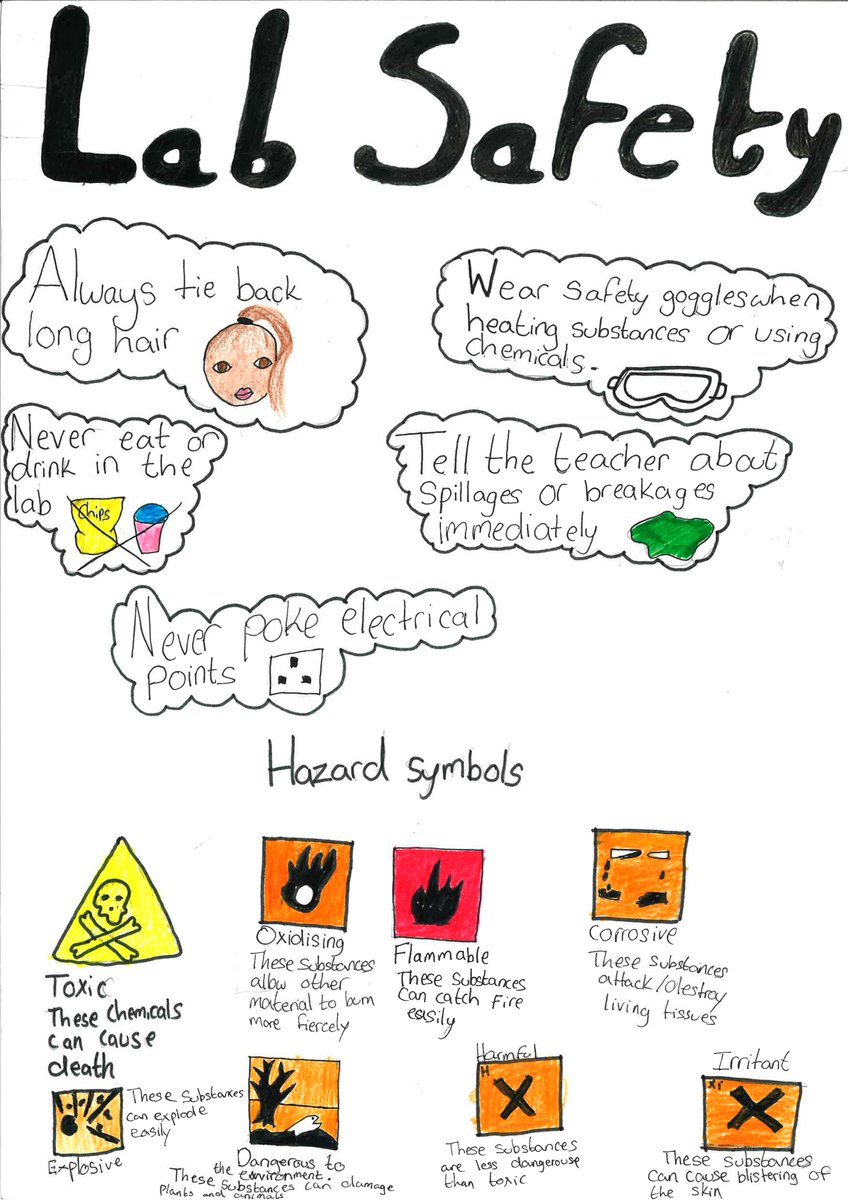 Lab Safety
Always tie back
long hair
Wear Safety goggles when
heating substances or using
chemicals.
Never eat or
drink in the
lab
Chips
Tell the teacher about
Spillages or breakages
immediately
Never poke electrical
points
Hazard symbols
Toxic
These chemicals
can cause
death
Oxidising
These substances
allow other
material to burn
more fiercely
Flammable
These substances
can catch fire
easily
Corrosive
These substances
attack/destroy
living tissues
Explosive
These substances
can explode
easily
Dangerous to
the environment.
These substances can damage
plants and animals
Harmful
H
These substances
are less dangerouse
than toxic
Irritant
Xi
These substances
can cause blistering of
the skin